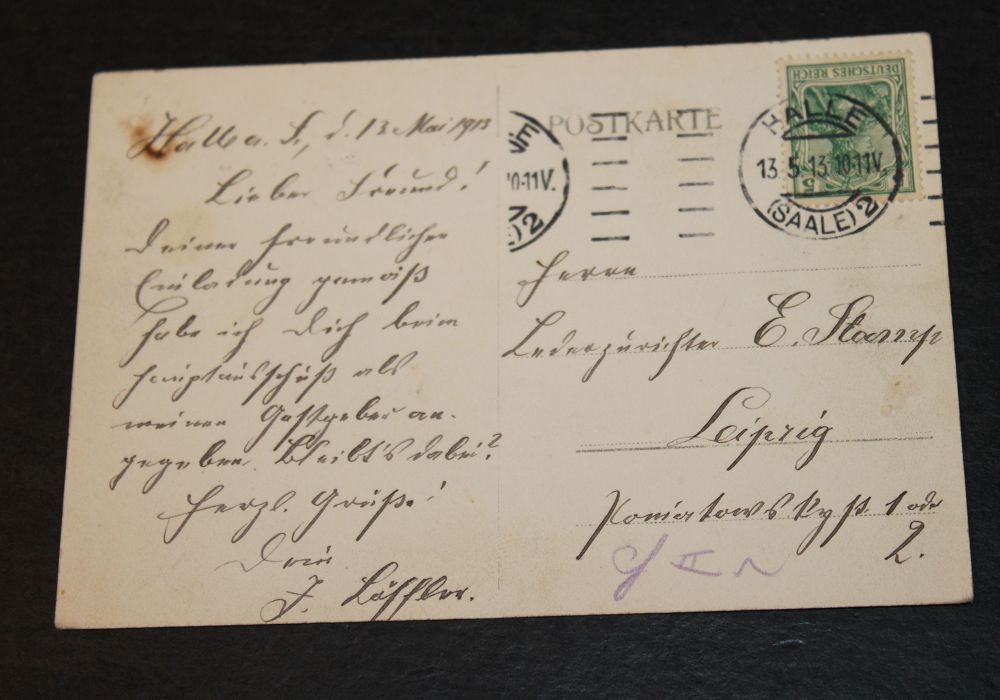 Halle a. S., d. 13 Mai 1913
Lieber Freund!
Deiner freundlicher
Einladung gemäß
habe ich Dich beim
Hauptausschuß als
meinen Gastgeber an-
gegeben. Bleibt's dabei?
Herzl. Grüße!
Dein
J. Löffler.
POSTKARTE
DEUTSCHES REICH
5
HALLE
13.5.13.10-11V.
(SAALE) 2
LE
10-11V.
E) 2
Herrn
Lederzurichter E. Stamp
Leipzig
Poniatowskystr. 1 oder
2.